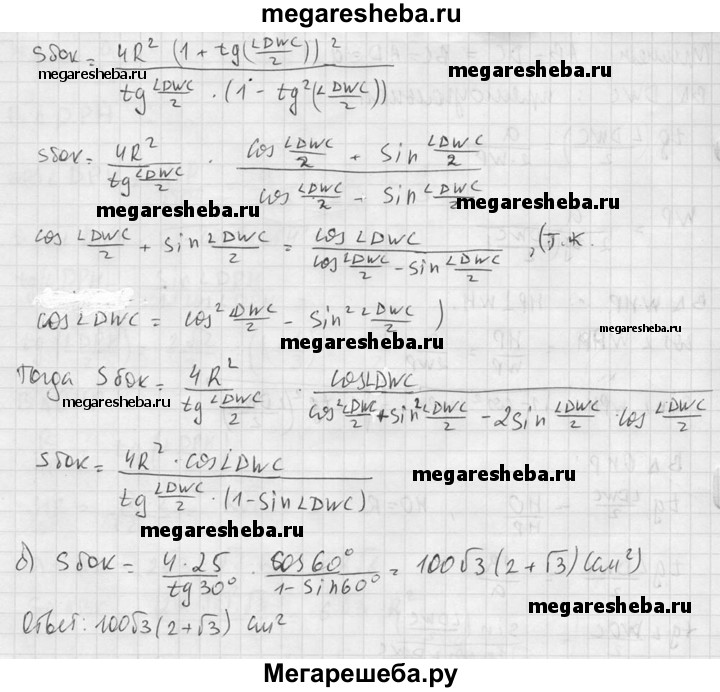 megaresheba.ru
Sбок = 4R² (1 + tg(∠DWC/2))² / (tg ∠DWC/2 · (1 - tg²(∠DWC/2)))
megaresheba.ru megaresheba.ru
Sбок = 4R² / tg ∠DWC/2 · (cos ∠DWC/2 + sin ∠DWC/2) / (cos ∠DWC/2 - sin ∠DWC/2)
megaresheba.ru megaresheba.ru
cos ∠DWC/2 + sin ∠DWC/2 = cos ∠DWC / (cos ∠DWC/2 - sin ∠DWC/2), (т.к.
cos ∠DWC = cos² ∠DWC/2 - sin² ∠DWC/2)
megaresheba.ru
Тогда Sбок = 4R² / tg ∠DWC/2 · cos∠DWC / (cos² ∠DWC/2 + sin² ∠DWC/2 - 2sin ∠DWC/2 · cos ∠DWC/2)
megaresheba.ru
Sбок = 4R² · cos∠DWC / (tg ∠DWC/2 · (1 - sin∠DWC))
megaresheba.ru
megaresheba.ru
б) Sбок = 4·25 / tg30° · cos60° / (1 - sin60°) = 100√3 (2 + √3) (см²)
megaresheba.ru
Ответ: 100√3 (2 + √3) см²
Мегарешеба.ру